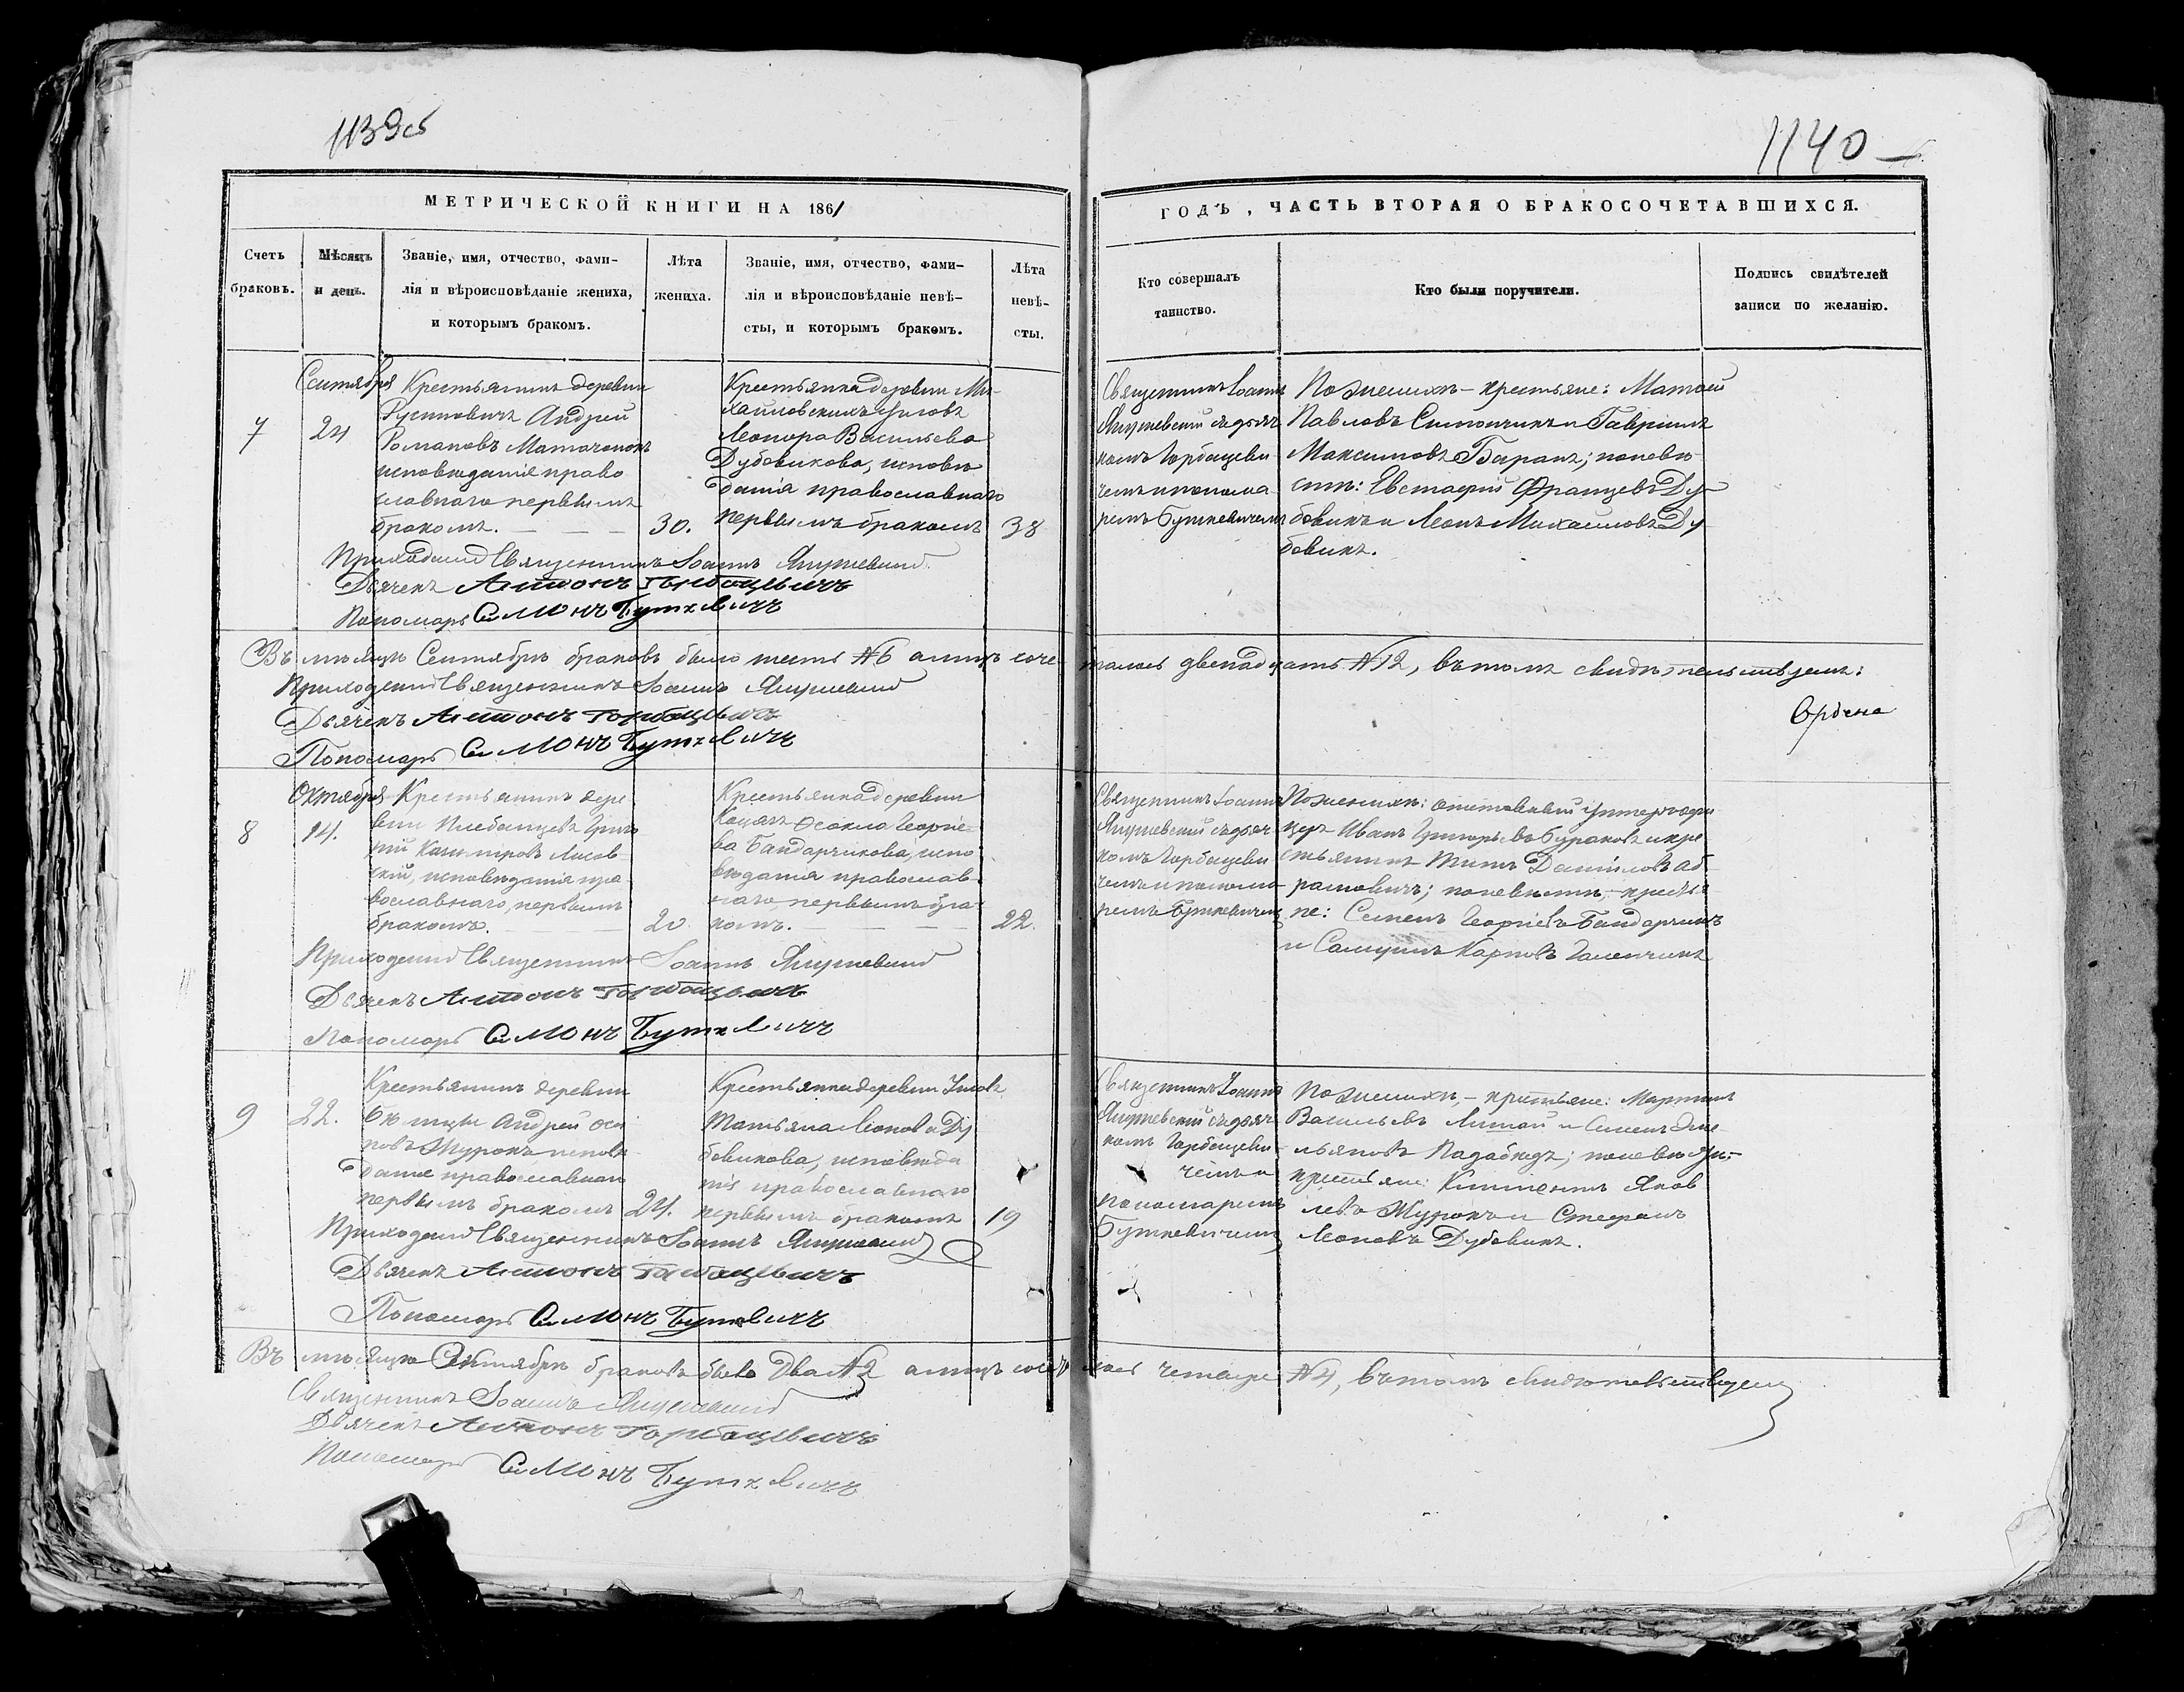 1139об
1140
МЕТРИЧЕСКОЙ КНИГИ НА 1861
ГОДЪ, ЧАСТЬ ВТОРАЯ О БРАКОСОЧЕТАВШИХСЯ.
Счетъ браковъ.
Мѣсяцъ и день.
Званіе, имя, отчество, фами-
лія и вѣроисповѣданіе жениха,
и которымъ бракомъ.
Лѣта
жениха.
Званіе, имя, отчество, фами-
лія и вѣроисповѣданіе невѣ-
сты, и которымъ бракомъ.
Лѣта
невѣ-
сты.
Кто совершалъ
таинство.
Кто были поручители.
Подпись свидѣтелей
записи по желанію.
7
Сентября
24
Крестьянинъ деревни
Русиновичъ Андрей
Романовъ
исповѣданія право
славнаго первымъ
бракомъ.
30.
Крестьянка деревни Ми-
хайловскихъ
Леонора Васильева
Дубовикова, исповѣ
данія православнаго
первымъ бракомъ
38
Священникъ Іоаннъ
съ дьяч
комъ Горбацеви
чемъ и понома
ремъ Буткевичемъ
По женихѣ – крестьяне: Матвей
Павловъ и Гавріилъ
Максимовъ Баранъ; по невѣ
стѣ: Евстафій Францевъ Ду-
бовикъ и Леонъ Михайловъ Ду
бовикъ.
Приходскій Священникъ Іоаннъ
Дьячекъ Антонъ Горбацевичъ
Пономарь Симонъ Буткевичъ
Въ мѣсяцѣ Сентябрѣ браковъ было шесть №6 а лицъ соче-
талось двенадцать №12, въ томъ свидѣтельствуемъ:
Приходскій Священникъ Іоаннъ
Дьячекъ Антонъ Горбацевичъ
Пономарь Симонъ Буткевичъ
8
Октября
14.
Крестьянинъ дере
вни Плебанцевъ Григо
рій Казиміровъ Лисов-
скій, исповѣданія пра
вославнаго, первымъ
бракомъ.
20.
Крестьянка деревни
Ѳекла Георгіе-
ва Бандарчикова, испо
вѣданія православ-
наго, первымъ бра-
комъ.
22.
Священникъ Іоаннъ
съ дьяч
комъ Горбацеви
чемъ и понома-
ремъ Буткевичемъ
По женихѣ: отставный унтеръ офи
церъ Иванъ Григорьевъ Бураковъ и кре
стьянинъ Титъ Даніиловъ Аб-
рамовичъ; по невѣстѣ, – крестья
не: Семенъ Георгіевъ Бандарчикъ
и Самуилъ Карповъ
Приходскій Священникъ Іоаннъ
Дьячекъ Антонъ Горбацевичъ
Пономарь Симонъ Буткевичъ
9
22.
Крестьянинъ деревни
Андрей Оси
повъ исповѣ
данія православнаго
первымъ бракомъ
24.
Крестьянка деревни
Татьяна Леонова Ду
бовикова, исповѣда
нія православнаго
первымъ бракомъ
19
Священникъ Іоаннъ
съ дьяч
комъ Горбацеви-
чемъ и
пономаремъ
Буткевичемъ
По женихѣ, – крестьяне: Мартинъ
Васильевъ и Семенъ Эме-
льяновъ по невѣстѣ,–
крестьяне: Климентъ Яков
левъ и Стефанъ
Леоновъ Дубовикъ.
Приходскій Священникъ Іоаннъ
Дьячекъ Антонъ Горбацевичъ
Пономарь Симонъ Буткевичъ
Въ мѣсяцѣ Октябрѣ браковъ было два №2 а лицъ сочета
лось четыре №4, въ томъ свидѣтельствуемъ
Священникъ Іоаннъ
Дьячекъ Антонъ Горбацевичъ
Пономарь Симонъ Буткевичъ